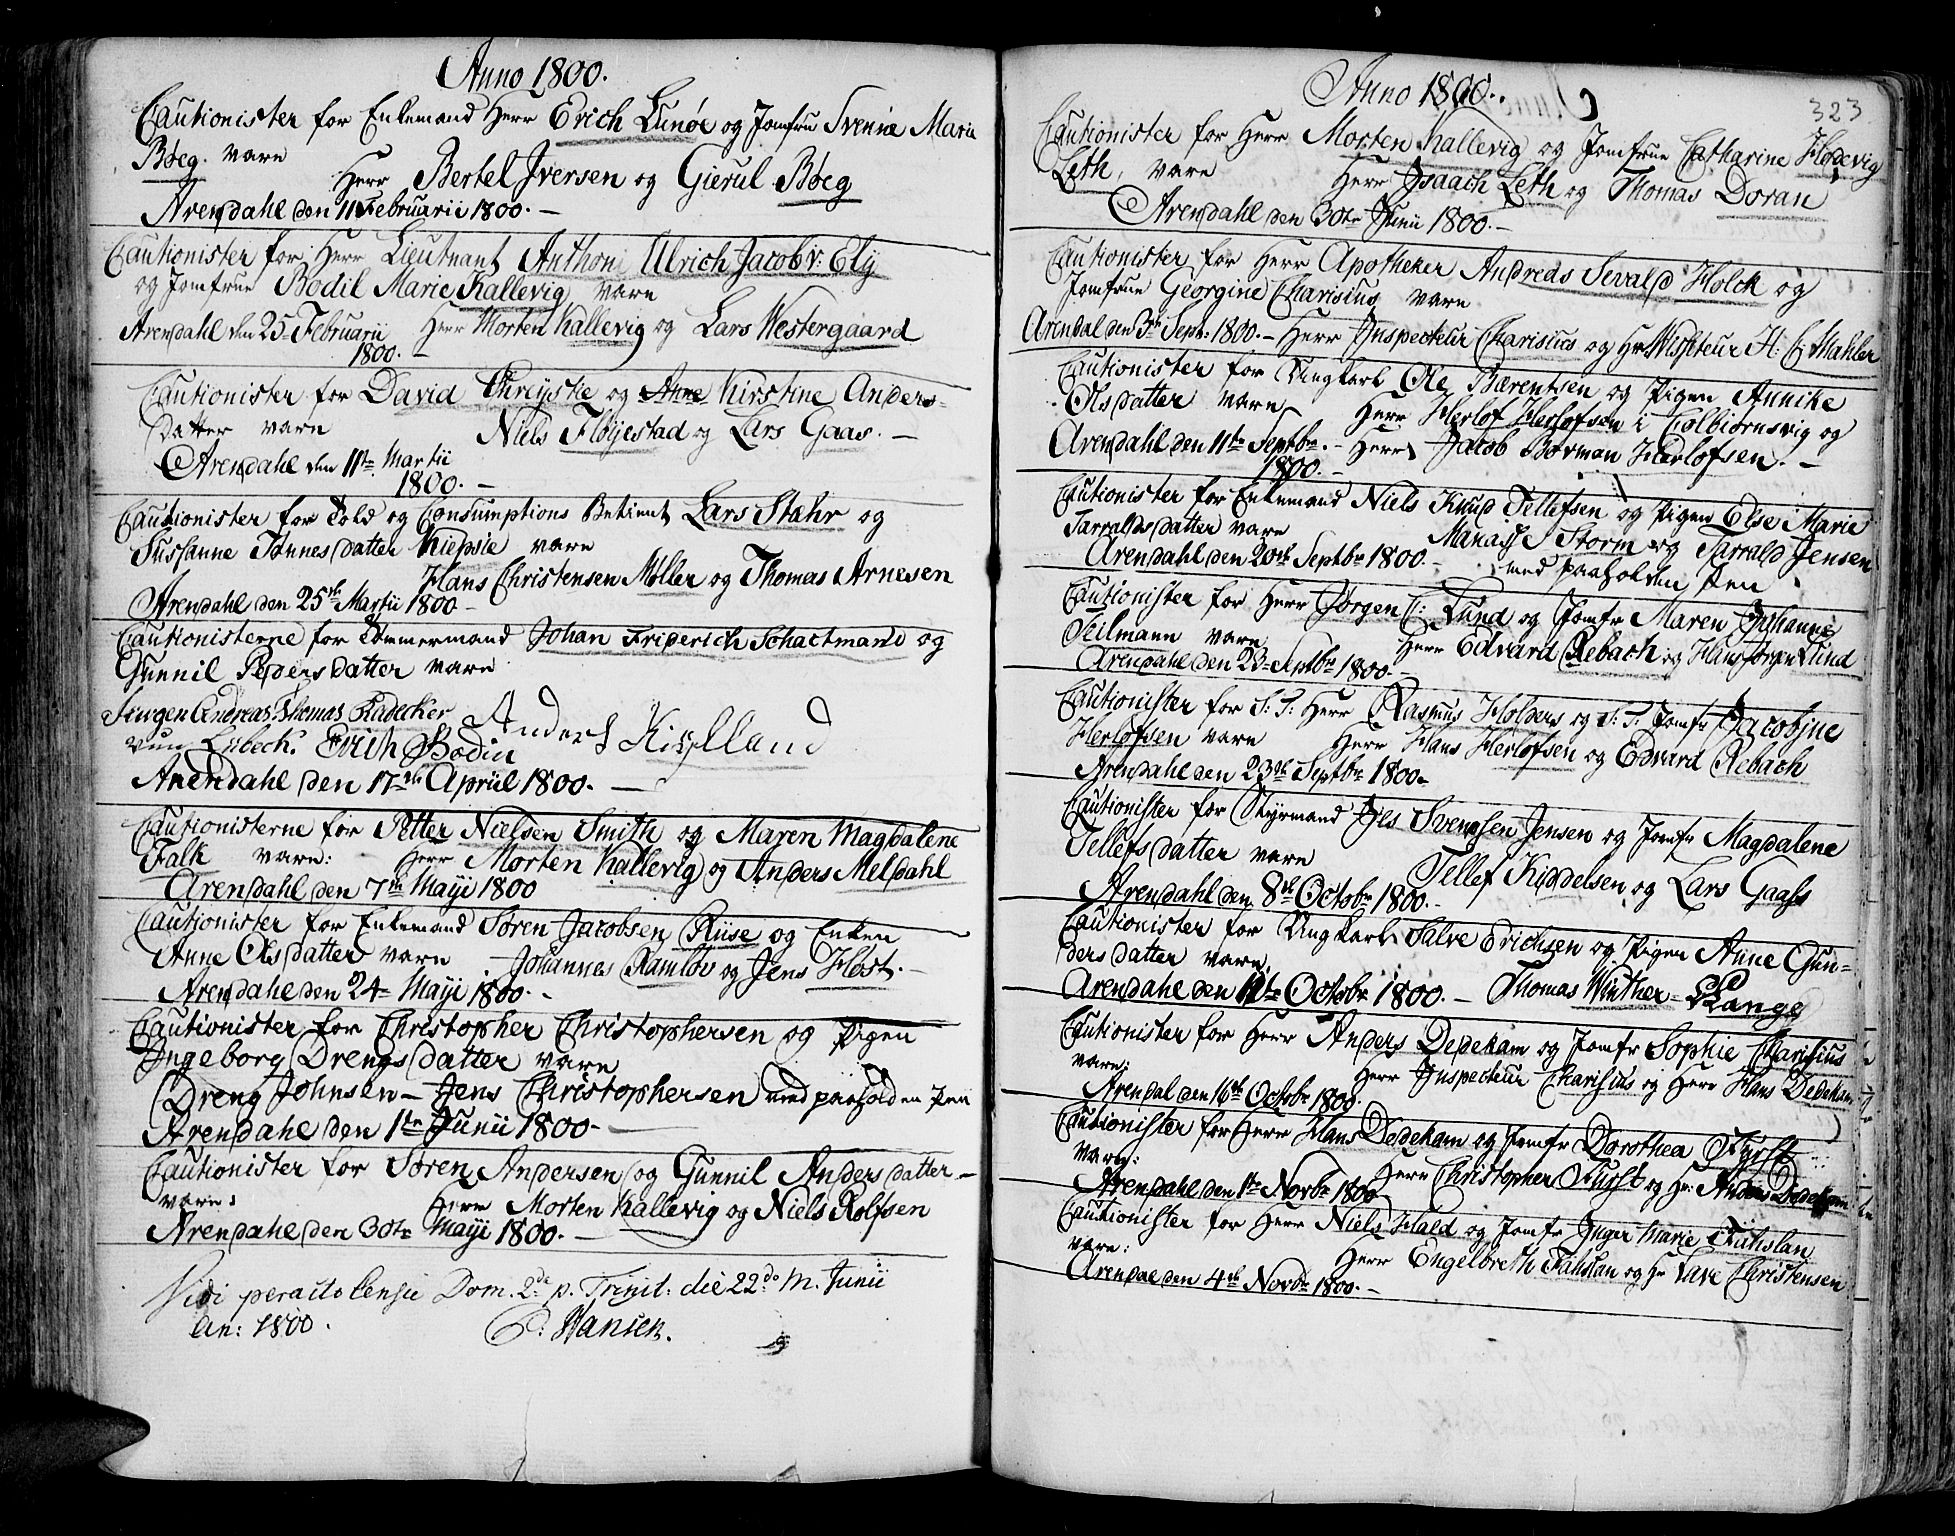 Anno 1800.
Cautionister for Enkemand Herr Erich Lunør og Jomfru Svenne Marie
Bøeg. vare
Herr Bertel Iversen og Gierul Bøeg
Arendahl den 11 Februarii 1800. —
Cautionister for Herr Lieutnant Anthon Ulrich Jacob v: Ely
og Jomfrue Bodil Marie Kallevig vare
Arendahl den 25 Februarii Herr Morten Kallevig og Lars Westergaard
1800. —
Cautionister for David Chreystie og Anne Kirstine Anders-
datter vare Niels Fløyestad og Lars Gaas. —
Arendahl den 11te Martii
1800. —
Cautionister for Told og Consumptions Betient Lars Stahr og
Sussanne Tønnesdatter Kiepsie vare
Hans Christensen Møller og Thomas Arnesen
Arendahl den 25de Martii 1800 —
Cautionisterne for Tømmermand Johan Friderich Schactmand og
Gunnil Pedersdatter vare
Jürgen Andreas Thomas Radecker
vun Lübeck. Erich Bodin Anders Kielland
Arendahl den 17de Apriil 1800. —
Cautionisterne for Petter Nielsen Smith og Maren Magdalene
Falk vare: Herr Morten Kallevig og Anders Meldahl
Arendahl den 7de Maji 1800
Cautionister for Enkemand Søren Jacobsen Riise og Enken
Anne Olsdatter vare — Johannes Ramløv og Jens Høst. —
Arendahl den 24 Maji 1800. —
Cautionister for Christopher Christophersen og Pigen
Ingeborg Drengsdatter vare
Dreng Johnsen — Jens Christophersen med paaholden Pen
Arendahl den 1te Junii 1800 —
Cautionister for Søren Andersen og Gunnil Andersdatter —
vare: Herr Morten Kallevig og Niels Rolfsen
Arendahl den 30te Maji 1800. —
Vidi peracto Censu Dom. 2da p. Trinit: die 22do M. Junii
An: 1800. P: Hansen.
Anno 1800.
323
Cautionister for Herr Morten Kallevig og Jomfrue Catharine Hedevig
Leth, vare Herr Isaach Leth og Thomas Doran
Arendahl den 30te Junii 1800. —
Cautionister for Herr Apotheker Andreas Sevald Holck og
Jomfrue Georgine Charisius vare
Arendal den 3de Sept: 1800. — Herr Inspecteur Charisius og Hr Visiteur H: C Mahler
Cautionister for Ungkarl Ole Bærentsen og Pigen Annike
Olsdatter vare Herr Herlof Herlofsen i Colbiørnsvig og
Arendahl den 11te Septbr. — Herr Jacob Borman Herlofsen. —
1800. —
Cautionister for Enkemand Niels Knud Tellefsen og Pigen Else Marie
Tarraldsdatter vare Manasse Storm og Tarrald Jensen
Arendahl den 20de Septbr 1800. — med paaholden Pen
Cautionister for Herr Jørgen C: Lund og Jomfr Maren Johanne
Teilmann vare Herr Edvard Rebach og Hans Jørgen Lund
Arendahl den 23 Septbr 1800. —
Cautionister for S: T: Herr Rasmus Holbers og S: T: Jomfr Jacobjne
Herlofsen vare Herr Hans Herlofsen og Edvard Rebach
Arendahl den 23de Septbr 1800 —
Cautionister for Styrmand Jes Svendsen Jensen og Jomfr Magdalene
Tellefsdatter vare Tellef Kiddelsen og Lars Gaass
Arendahl den 8de Octobr 1800. —
Cautionister for Ungkarl Salve Erichsen og Pigen Anne Gun-
dersdatter vare.
Arendahl den 11te Octobr 1800. — Thomas Winther — Lange
Cautionister for Herr Anders Dedekam og Jomfr Sophie Charisius
vare: Herr Inspecteur Charisius og Herr Hans Dedekam
Arendal den 16de Octobr 1800.
Cautionister for Herr Hans Dedekam og Jomfr Dorothea Fürst
vare: Herr Christopher Fürst og Hr: Anders Dedekam
Arendahl den 1te Novbr 1800
Cautionister for Herr Niels Hald og Jomfr Inger Marie Fahslan
vare: Herr Engelbreth Fahslan og Hr Lave Christensen
Arendal den 4de Novbr 1800. —